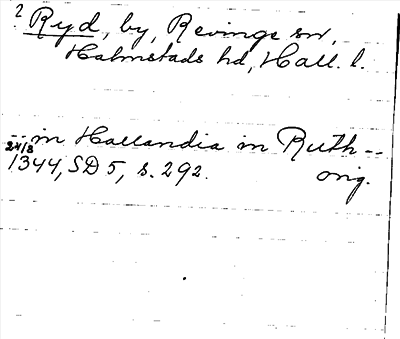 ? Ryd, by, Revinge sn,
Halmstads hd, Hall. l.
-- in Hallandia in Ruth --
24/8 1344, SD 5, s. 292. orig.